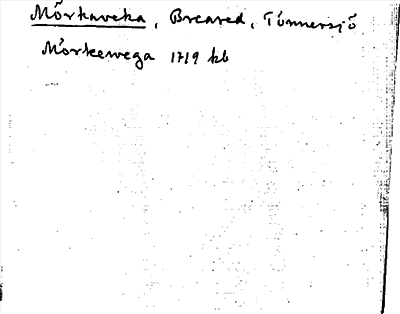 Mörkaveka, Breared, Tönnersjö
Mörkewega 1719 kb